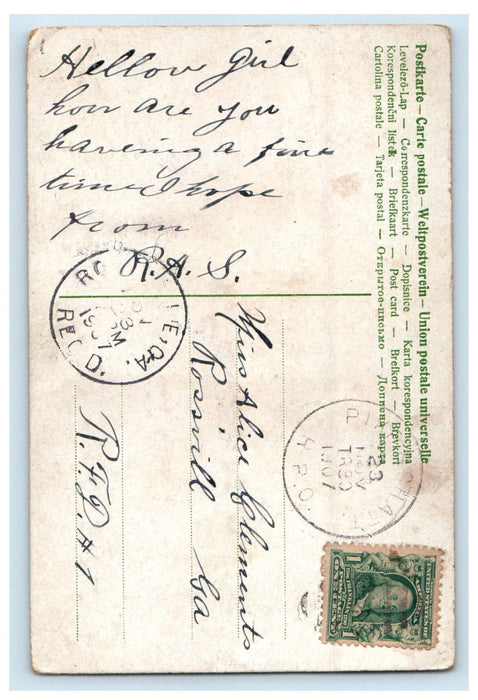 Hellow Girl
how are you
havering a fine
time I hope
from
R.A.S.
Postkarte — Carte postale — Weltpostverein — Union postale universelle
Levelező-Lap — Correspondenzkarte — Dopisnice — Karta korespondencyjna
Korespondenční lístek — Briefkaart — Post card — Brefkort — Brevkort
Cartolina postale — Tarjeta postal — Открытое-письмо — Дописна карта
Miss Alice Clements
Rossvill Ga
R.F.D. #1
GA.
1907
REC'D.
23
NOV
1907
R.P.O.
1
1